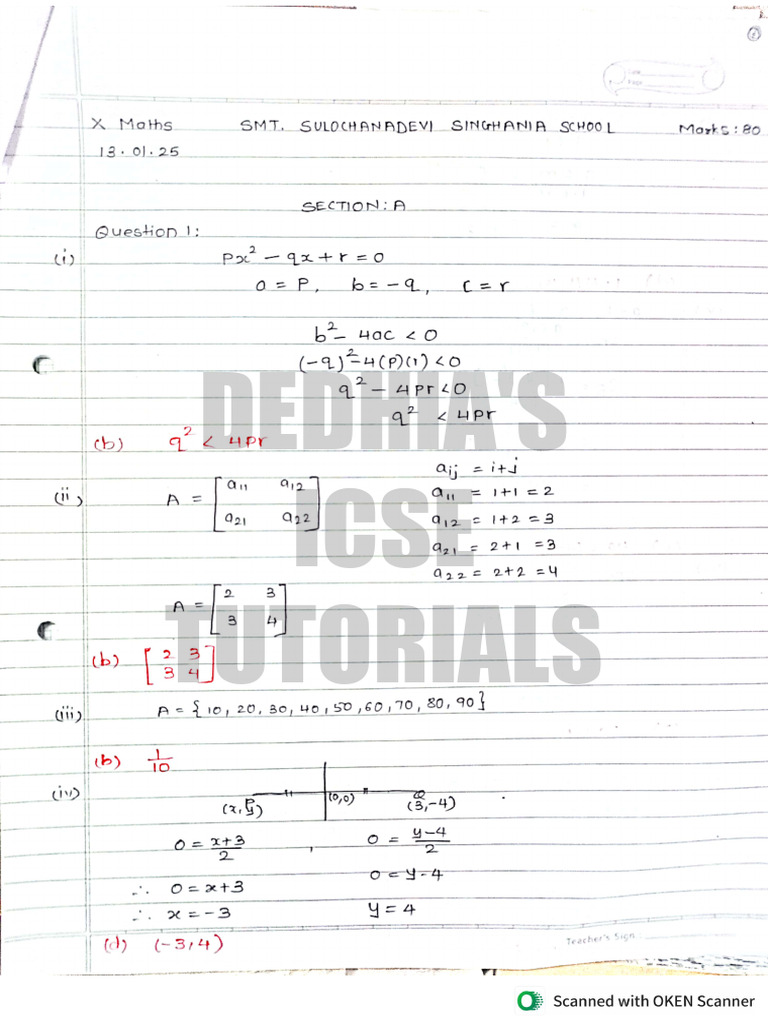 X Maths SMT. SULOCHANADEVI SINGHANIA SCHOOL Marks: 80
13.01.25
SECTION: A
Question 1:
(i) px² - qx + r = 0
a = P, b = -q, c = r
b² - 4ac < 0
(-q)² - 4(P)(r) < 0
q² - 4pr < 0
q² < 4pr
(b) q² < 4pr
(ii) A = [a₁₁ a₁₂
a₂₁ a₂₂]
aij = i+j
a₁₁ = 1+1 = 2
a₁₂ = 1+2 = 3
a₂₁ = 2+1 = 3
a₂₂ = 2+2 = 4
A = [2 3
3 4]
(b) [2 3
3 4]
(iii) A = {10, 20, 30, 40, 50, 60, 70, 80, 90}
(b) 1/10
(iv) P (0,0) Q
(x, y) (3, -4)
0 = x+3/2 , 0 = y-4/2
∴ 0 = x+3 0 = y-4
∴ x = -3 y = 4
(d) (-3, 4)
Teacher's Sign
DEDHIA'S
ICSE
TUTORIALS
Scanned with OKEN Scanner